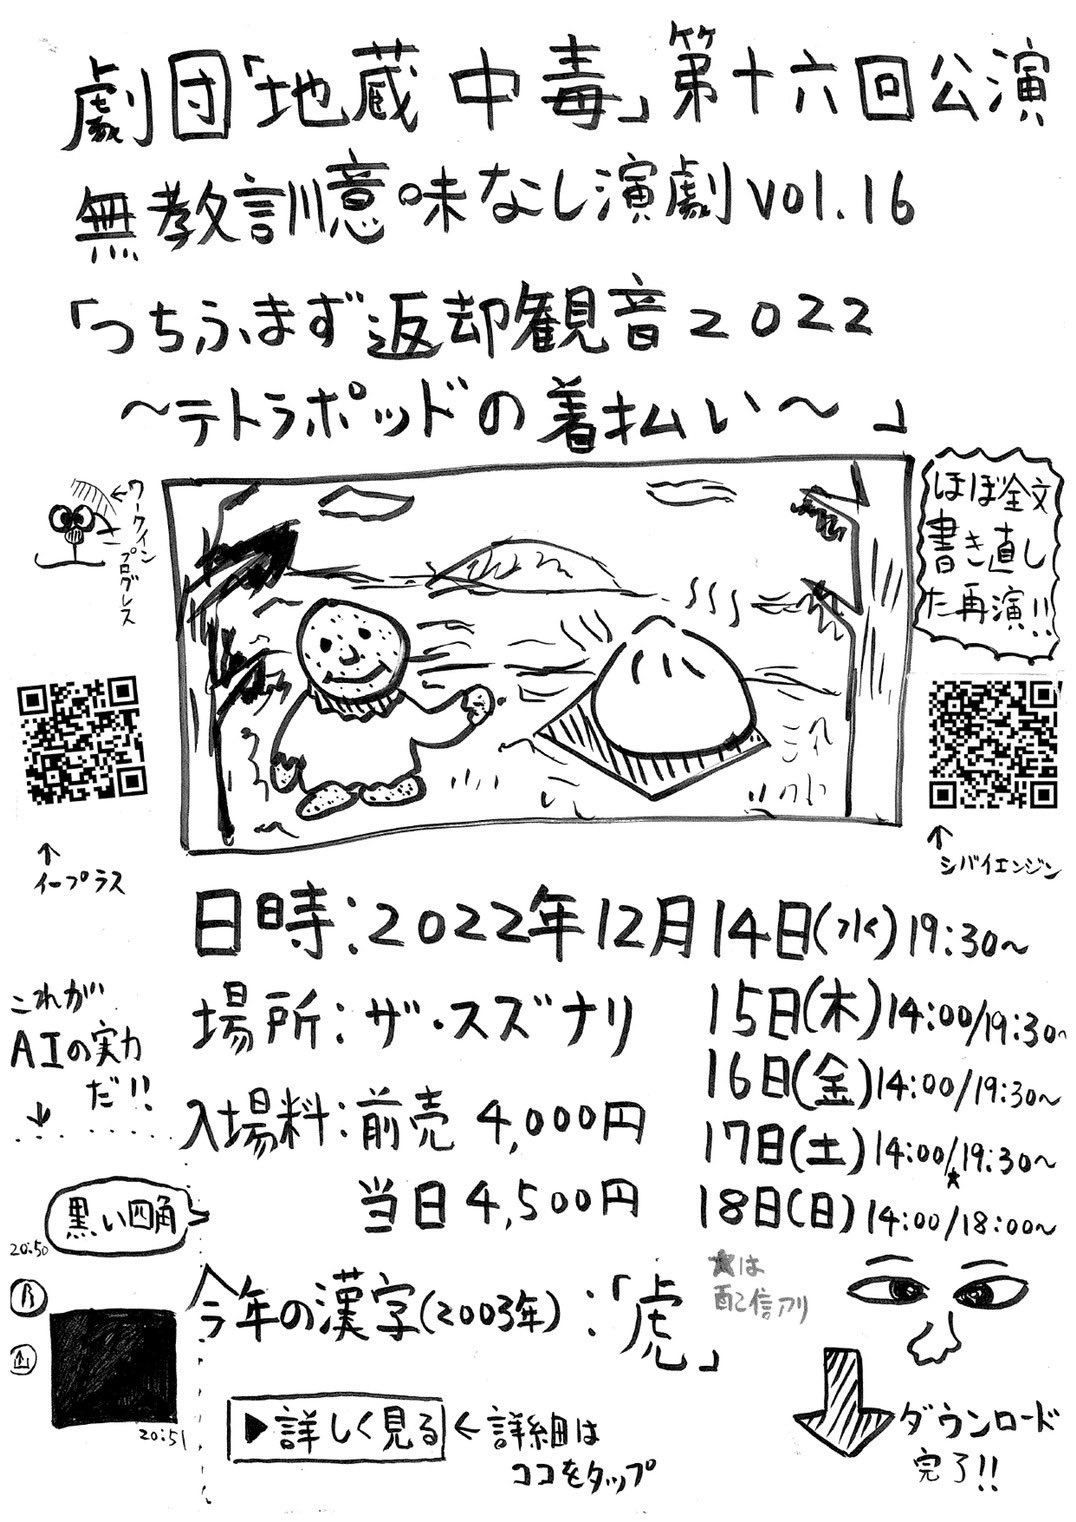 劇団「地蔵中毒」第十六回公演
無教訓意味なし演劇vol.16
「つちふまず返却観音2022
～テトラポッドの着払い～」
ワークイン
プログレス
ほぼ全文
書き直し
た再演!!
↑
イープラス
↑
シバイエンジン
日時:2022年12月14日(水)19:30～
15日(木)14:00/19:30～
16日(金)14:00/19:30～
17日(土)14:00/★19:30～
18日(日)14:00/18:00～
★は
配信アリ
場所:ザ・スズナリ
入場料:前売 4,000円
当日4,500円
これが
AIの実力
だ!!
↓
黒い四角
20:50
20:51
今年の漢字(2003年):「虎」
▶詳しく見る
←詳細は
ココをタップ
ダウンロード
完了!!